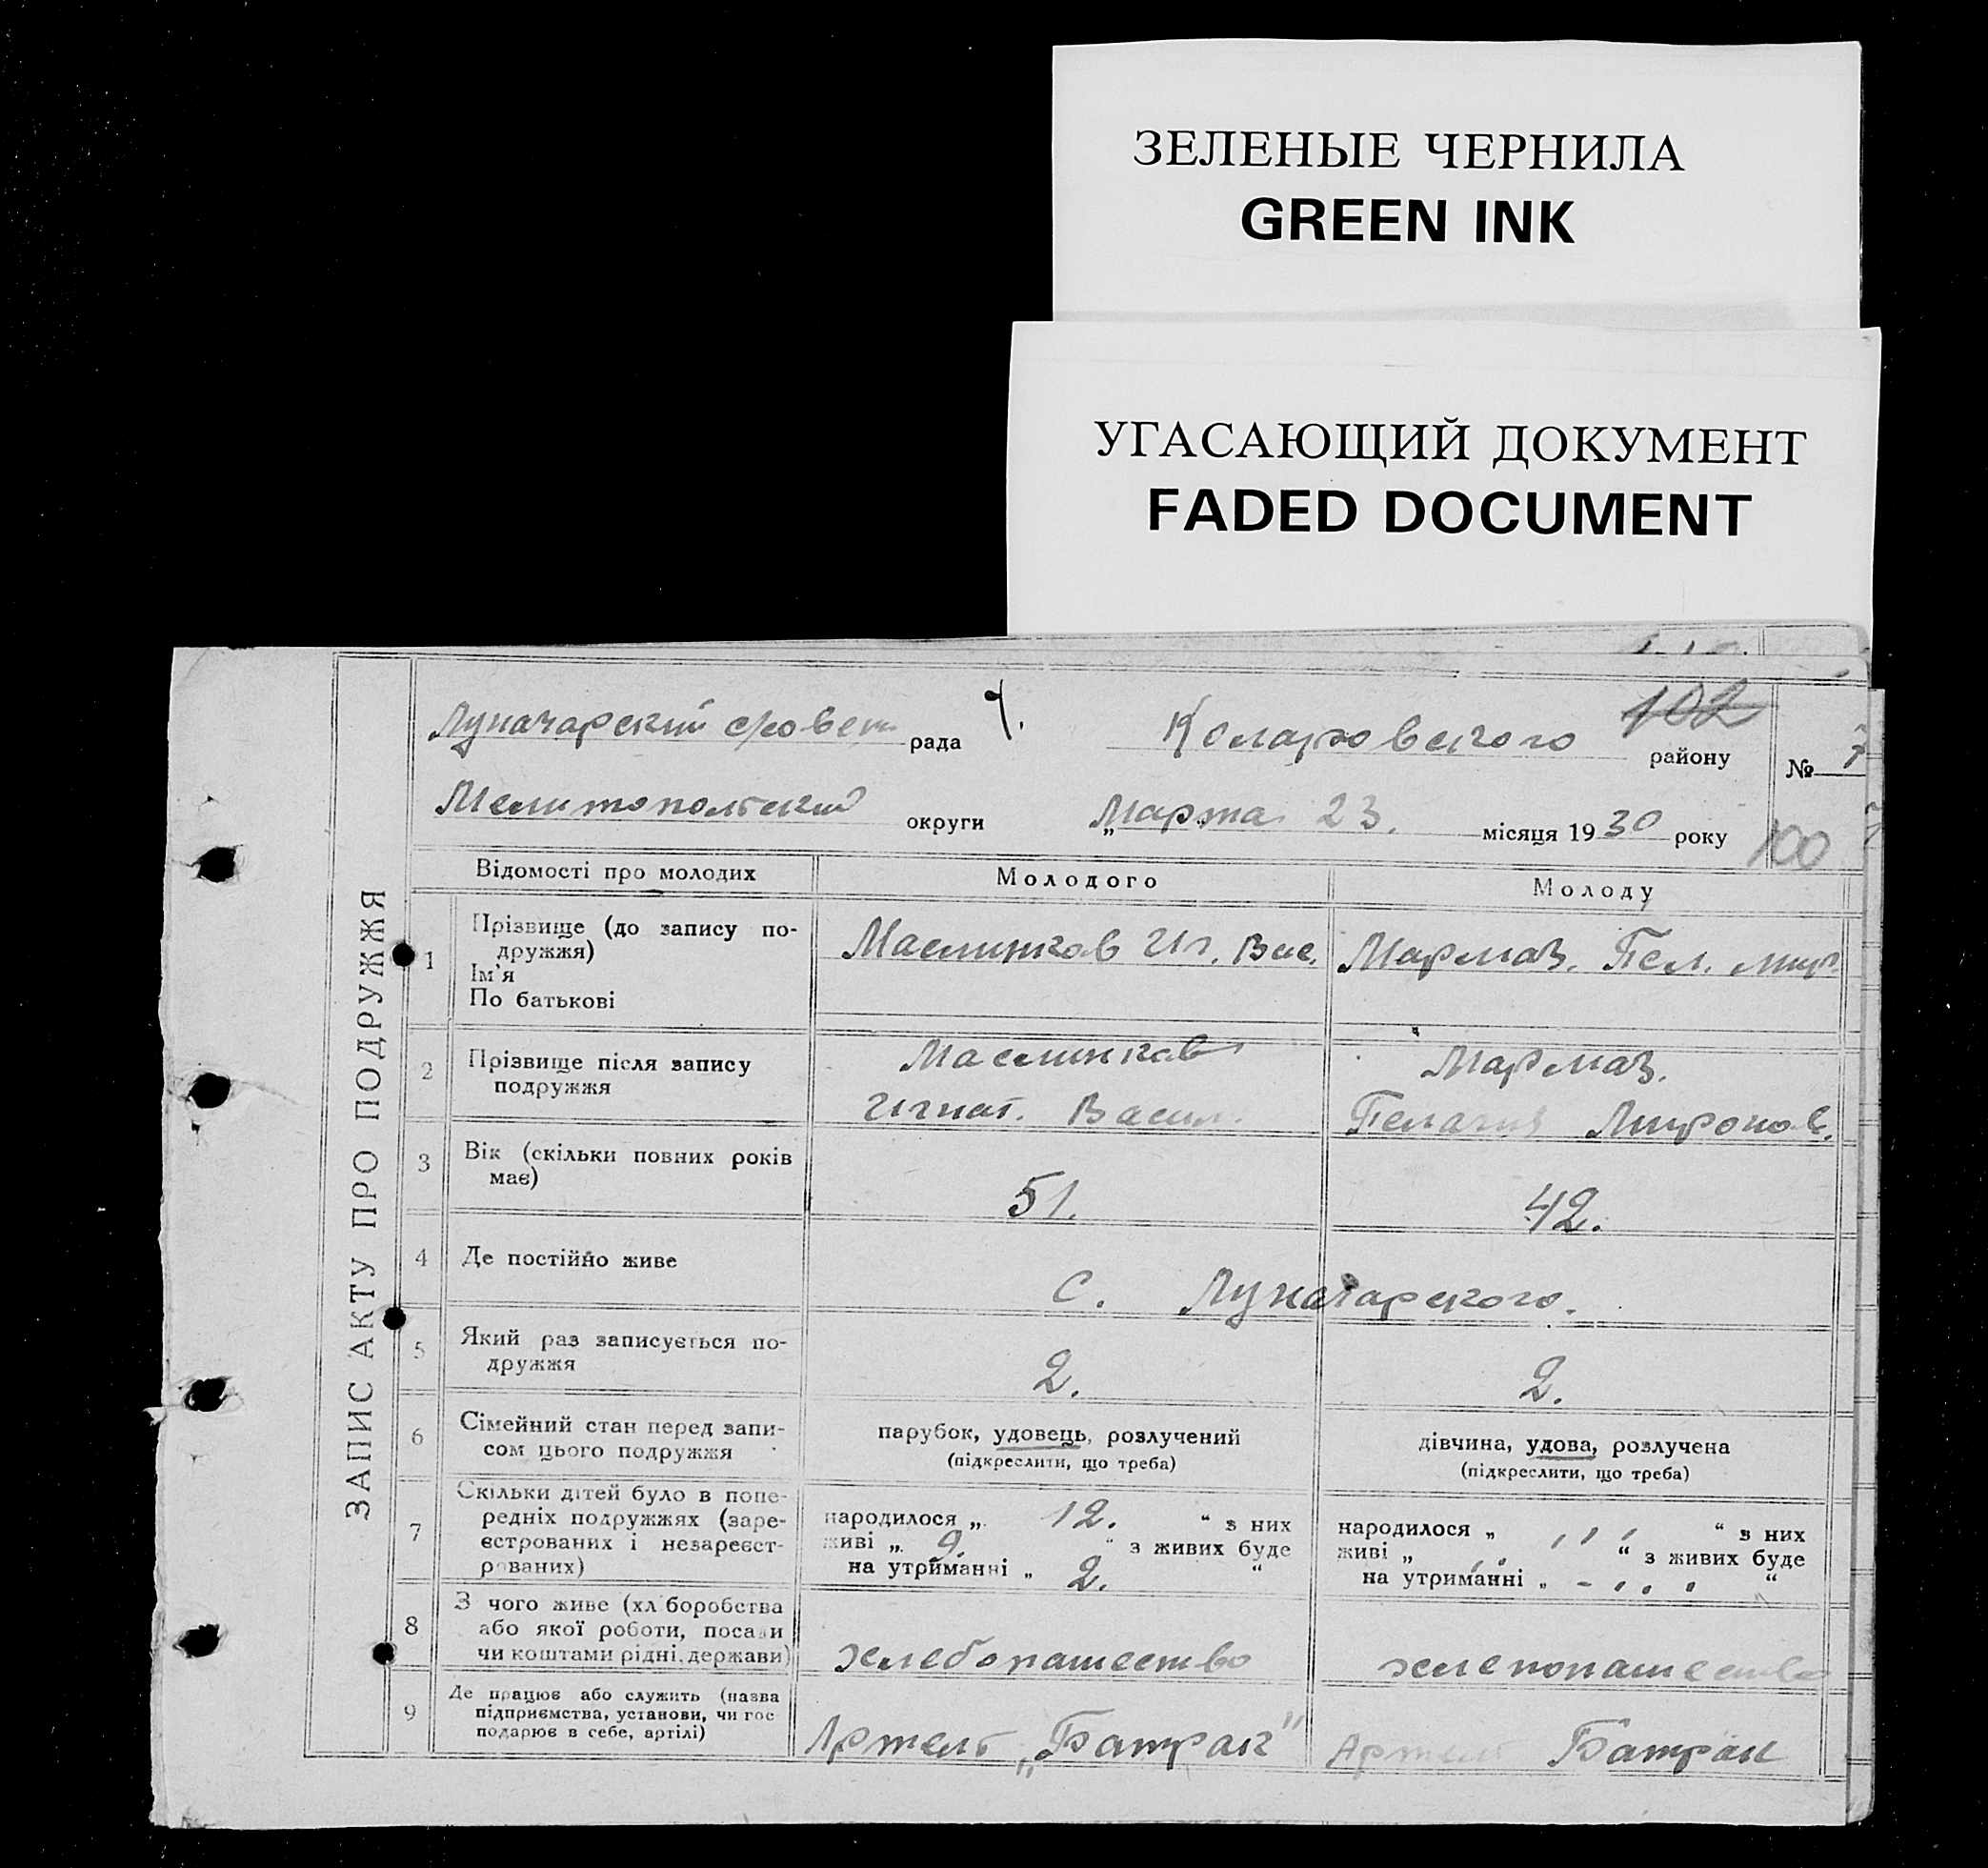 ЗЕЛЕНЫЕ ЧЕРНИЛА
GREEN INK
УГАСАЮЩИЙ ДОКУМЕНТ
FADED DOCUMENT
ЗАПИС АКТУ ПРО ПОДРУЖЖЯ
Луначарский с/совет рада Коларовского району 102 № 7
Мелитопольский округи „Марта 23. місяця 1930 року 100
Відомості про молодих Молодого Молоду
1 Прізвище (до запису по-
дружжя)
Ім'я
По батькові
Маслинков Иг. Вас. Мармаз. Пел. мир
2 Прізвище після запису
подружжя
Маслинков Мармаз.
Игнат. Васил. Пелагия Миронов.
3 Вік (скільки повних років
має)
51. 42.
4 Де постійно живе
с. Луначарского.
5 Який раз записується по-
дружжя
2. 2.
6 Сімейний стан перед запи-
сом цього подружжя
парубок, удовець, розлучений дівчина, удова, розлучена
(підкреслити, що треба) (підкреслити, що треба)
7 Скільки дітей було в попе-
редніх подружжях (заре-
єстрованих і незареєст-
рованих)
народилося „ 12. “ з них народилося „ “ з них
живі „ 9. “ з живих буде живі „ “ з живих буде
на утриманні „ 2. “ на утриманні „ “
8 З чого живе (хліборобства
або якої роботи, посади
чи коштами рідні, держави)
хлебопашество хлепопашество
9 Де працює або служить (назва
підприємства, установи, чи гос
подарює в себе, артілі)
Артель „Батрак“ Артель Батрак